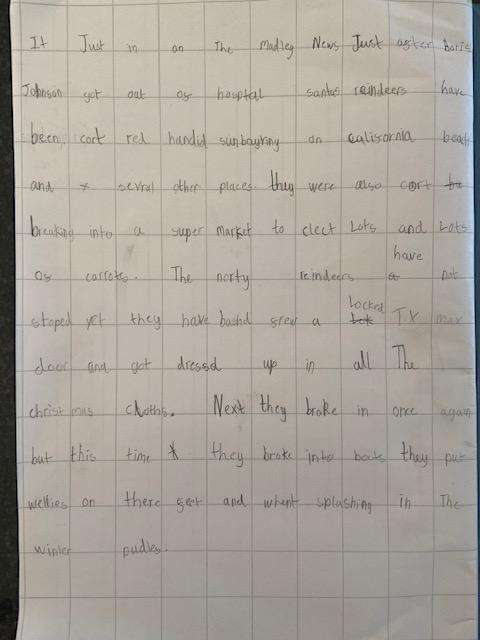 It Just in on The Madley News Just after boris
Johnson got out of hospital santas reindeers have
been cort red handid sunbayring on california beach
and sevral other places. they were also cort
breaking into a super market to clect Lots and Lots
of carrots. The norty reindeers have not
stoped yet they have bashd frew a locked TK max
door and got dressed up in all The
christmas cloths. Next they brake in once again
but this time they broke into boots they put
wellies on there feet and whent splashing in The
winter pudles.